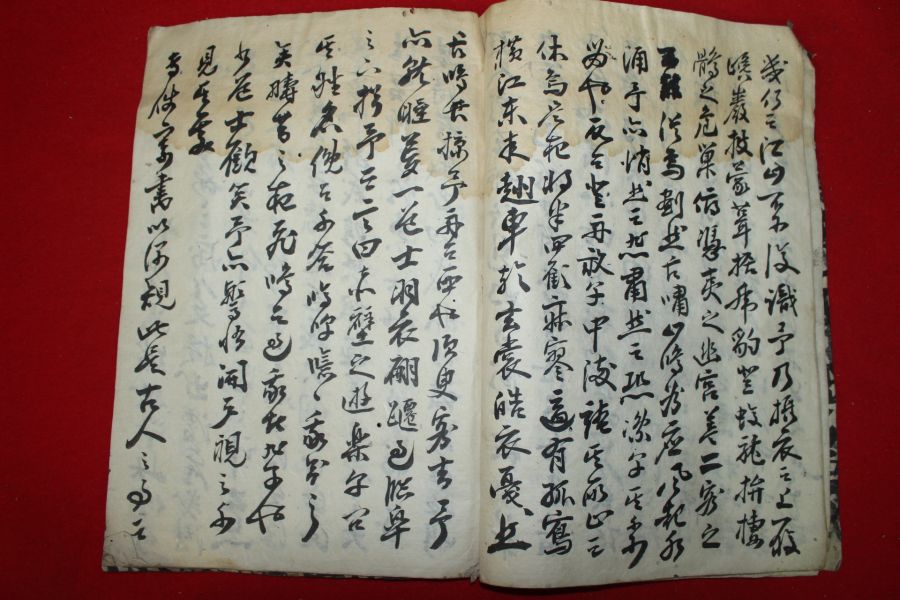 幾何而江山不復識予乃攝衣而上履
巉巖披蒙茸據虎豹登蚊龍拚棲
鶻之危巢俯憑夷之幽宮蓋二客之
不能從焉劃然長嘯山鳴谷應風起水
涌予亦悄然而悲肅然而恐凜乎其不可
留也反而登舟放乎中流聽其所止而
休焉是夜將半四顧寂寥適有孤鶴
橫江東來翅車輪玄裳皓衣戛然
長鳴掠予舟而西也須臾客去予
亦就睡夢一道士羽衣翩躚過臨皋
之下揖予而言曰赤壁之遊樂乎問
其姓名俛而不答嗚呼噫噫我知之
矣疇昔之夜飛鳴而過我者非子也
道士顧笑予亦驚悟開戶視之不
見其處
書以 此是古人之